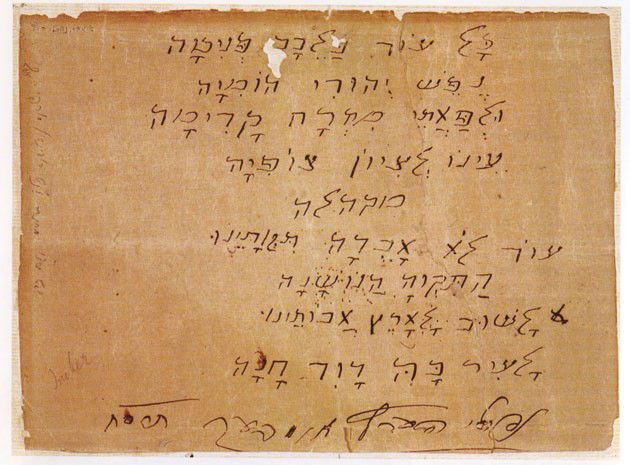 כָּל עוֹד בַּלֵּבָב פְּנִימָה
נֶפֶשׁ יְהוּדִי הוֹמִיָּה
וּלְפַאֲתֵי מִזְרָח קָדִימָה
עֵינוֹ לְצִיּוֹן צוֹפִיָּה
מוקהלה
עוֹד לֹא אָבְדָה תִּקְוָתֵינוּ
הַתִּקְוָה הַנּוֹשָׁנָה
לָשׁוּב לְאֶרֶץ אֲבוֹתֵינוּ
לָעִיר בָּהּ דָּוִד חָנָה
נפתלי הערץ אימבער
Imber